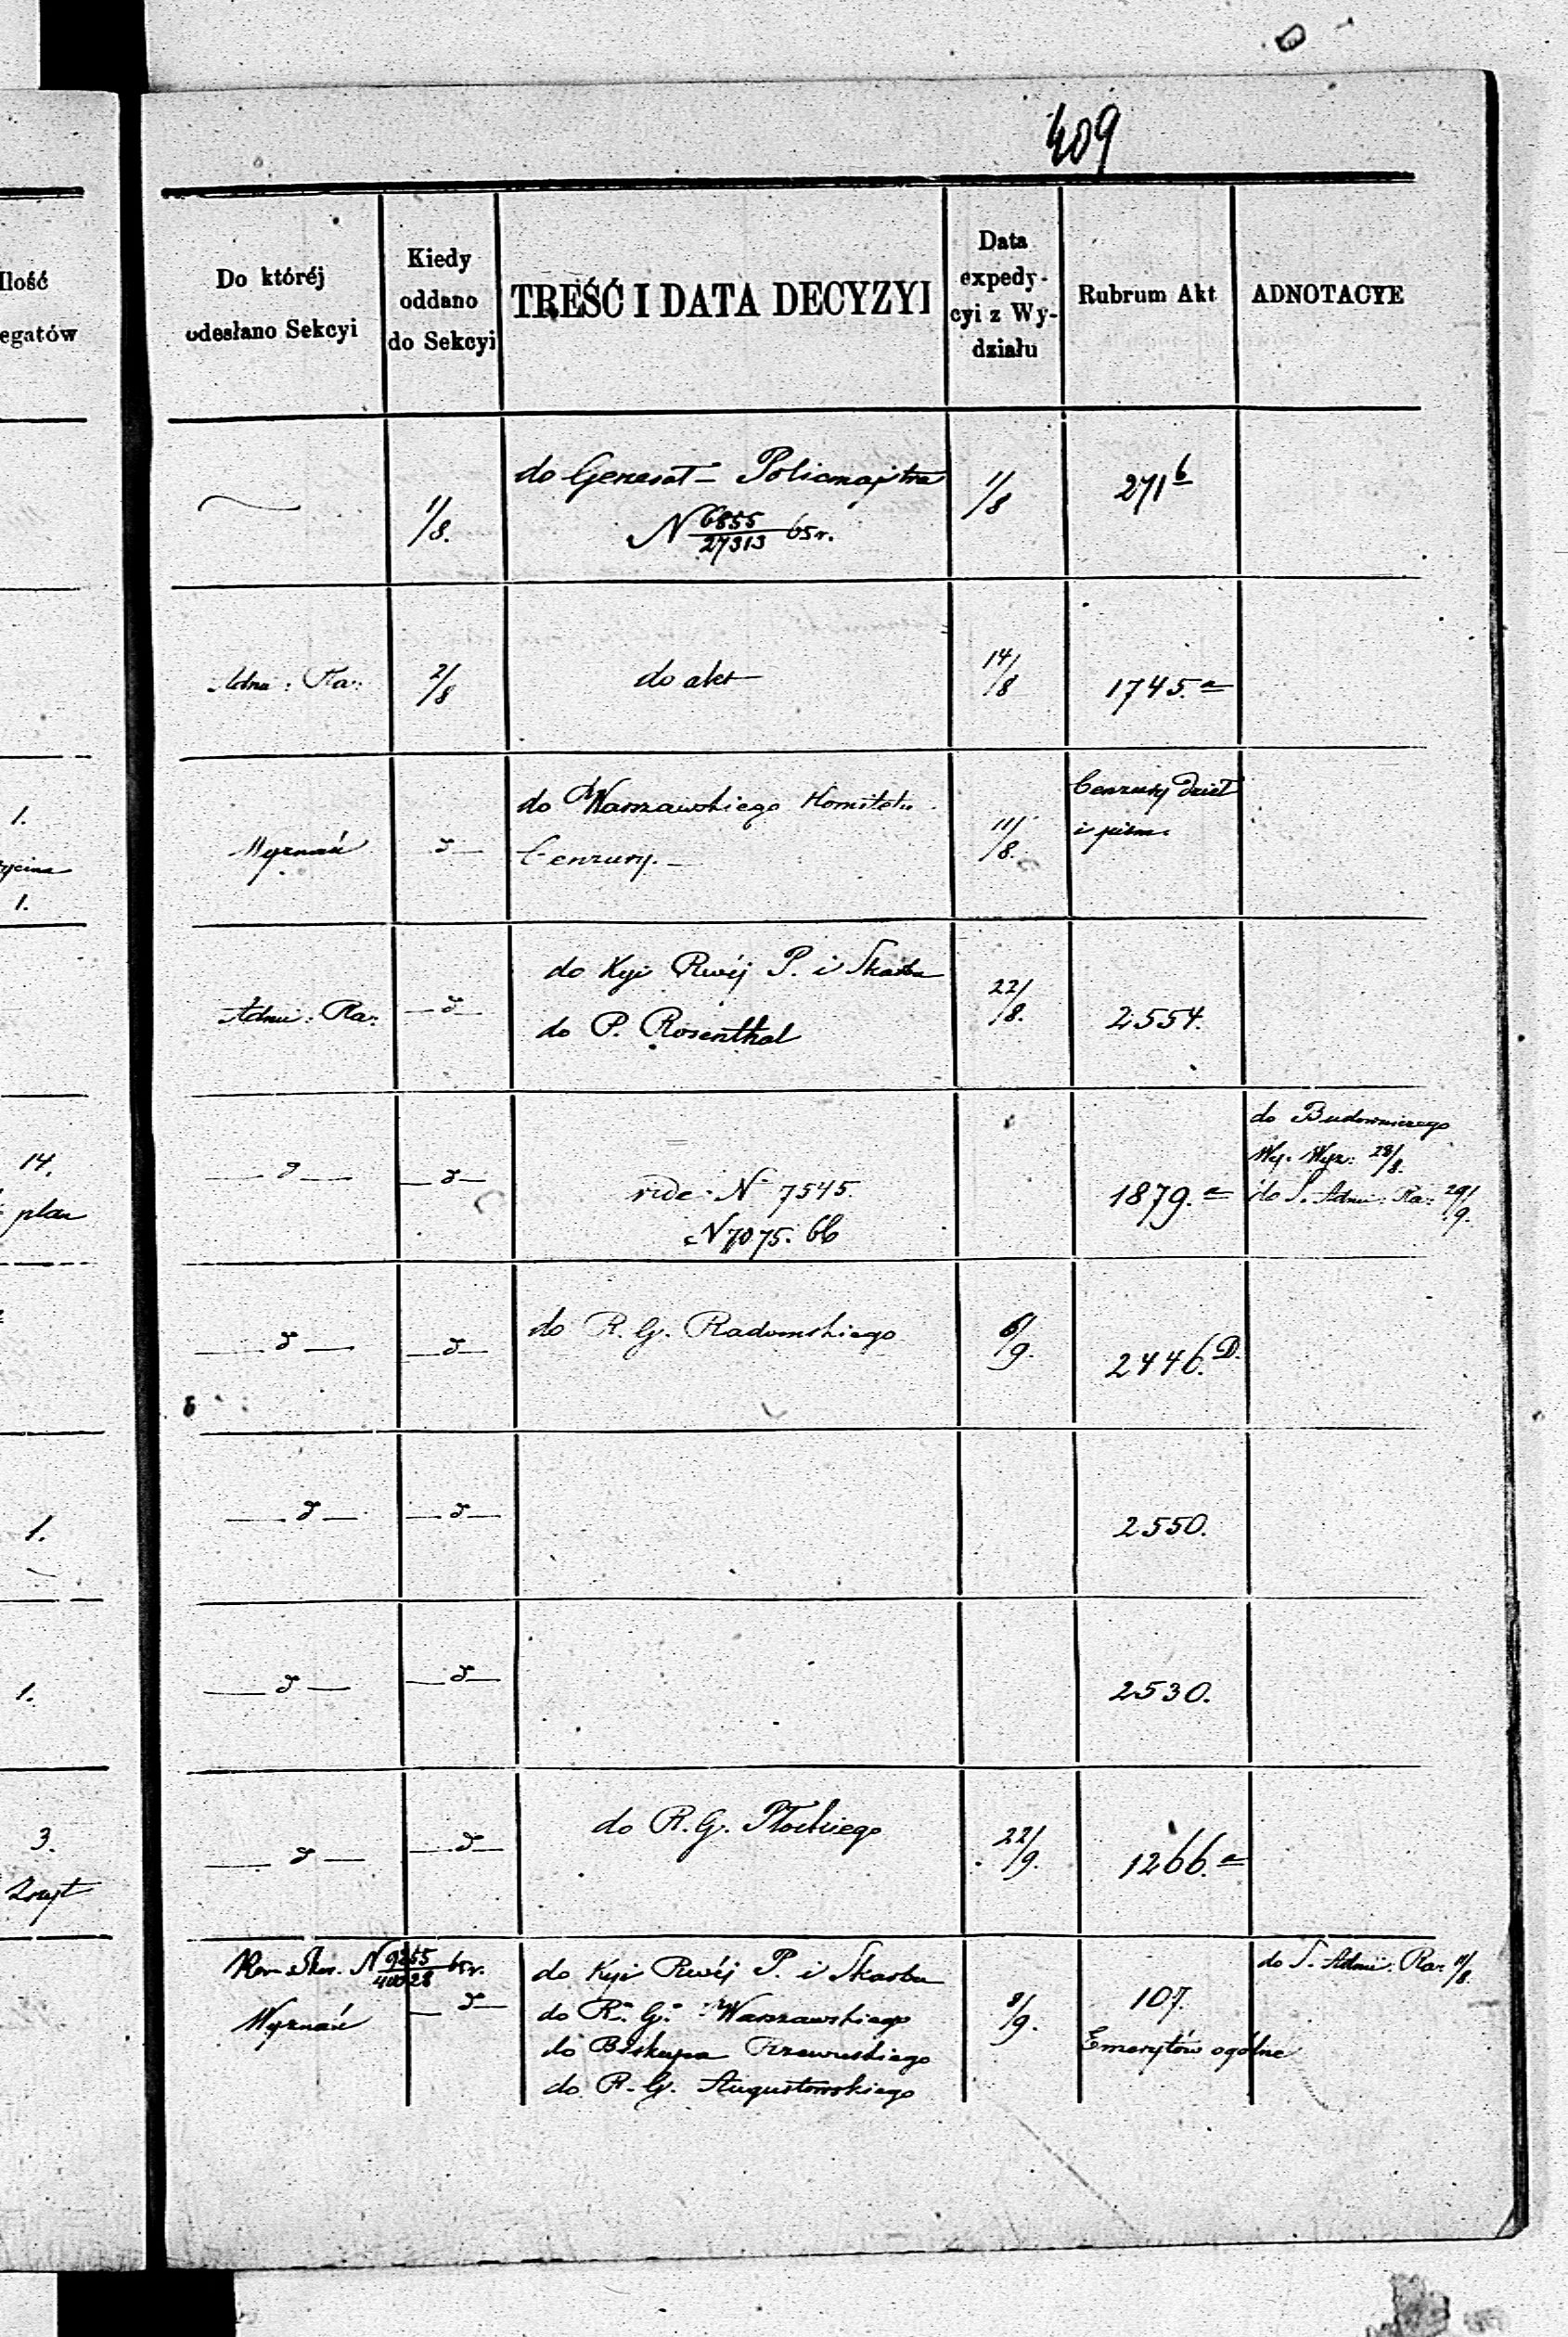 409
Ilość
egatów
Do któréj
odesłano Sekcyi
Kiedy
oddano
do Sekcyi
TREŚĆ I DATA DECYZYI
Data
expedy-
cyi z Wy-
działu
Rubrum Akt
ADNOTACYE
1/8.
do Generał- Policmajstra
N 6855/27313 65r.
1/8
271 b
Adm: Ra:
2/8
do akt
14/8
1745. a
1.
1.
Wyznań
d
do Warszawskiego Komitetu
Cenzury. -
11/8.
Cenzury dzieł
i pism.
Adm: Ra:
d
do Kyi Rwéj P. i Skarbu
do P. Rosenthal
22/8.
2554.
14.
plan
d
d
vide N 7545.
N 7075. 66
1879. a
do Budowniczego
Wy. Wyz: 28/8.
do S. Adm: Ra: 29/9.
d
d
do R. G. Radomskiego
6/9.
2446. D.
1.
d
d
2550.
1.
d
d
2530.
3.
d
d
do R. G. Płockiego
22/9.
1266. a
N 9255/40028 65r.
Wyznań
d
do Kyi Rwéj P. i Skarbu
do R. G. Warszawskiego
do Biskupa Rzewuskiego
do R. G. Augustowskiego
8/9.
107.
Emerytów ogólne
do S. Adm: Ra: 11/8.